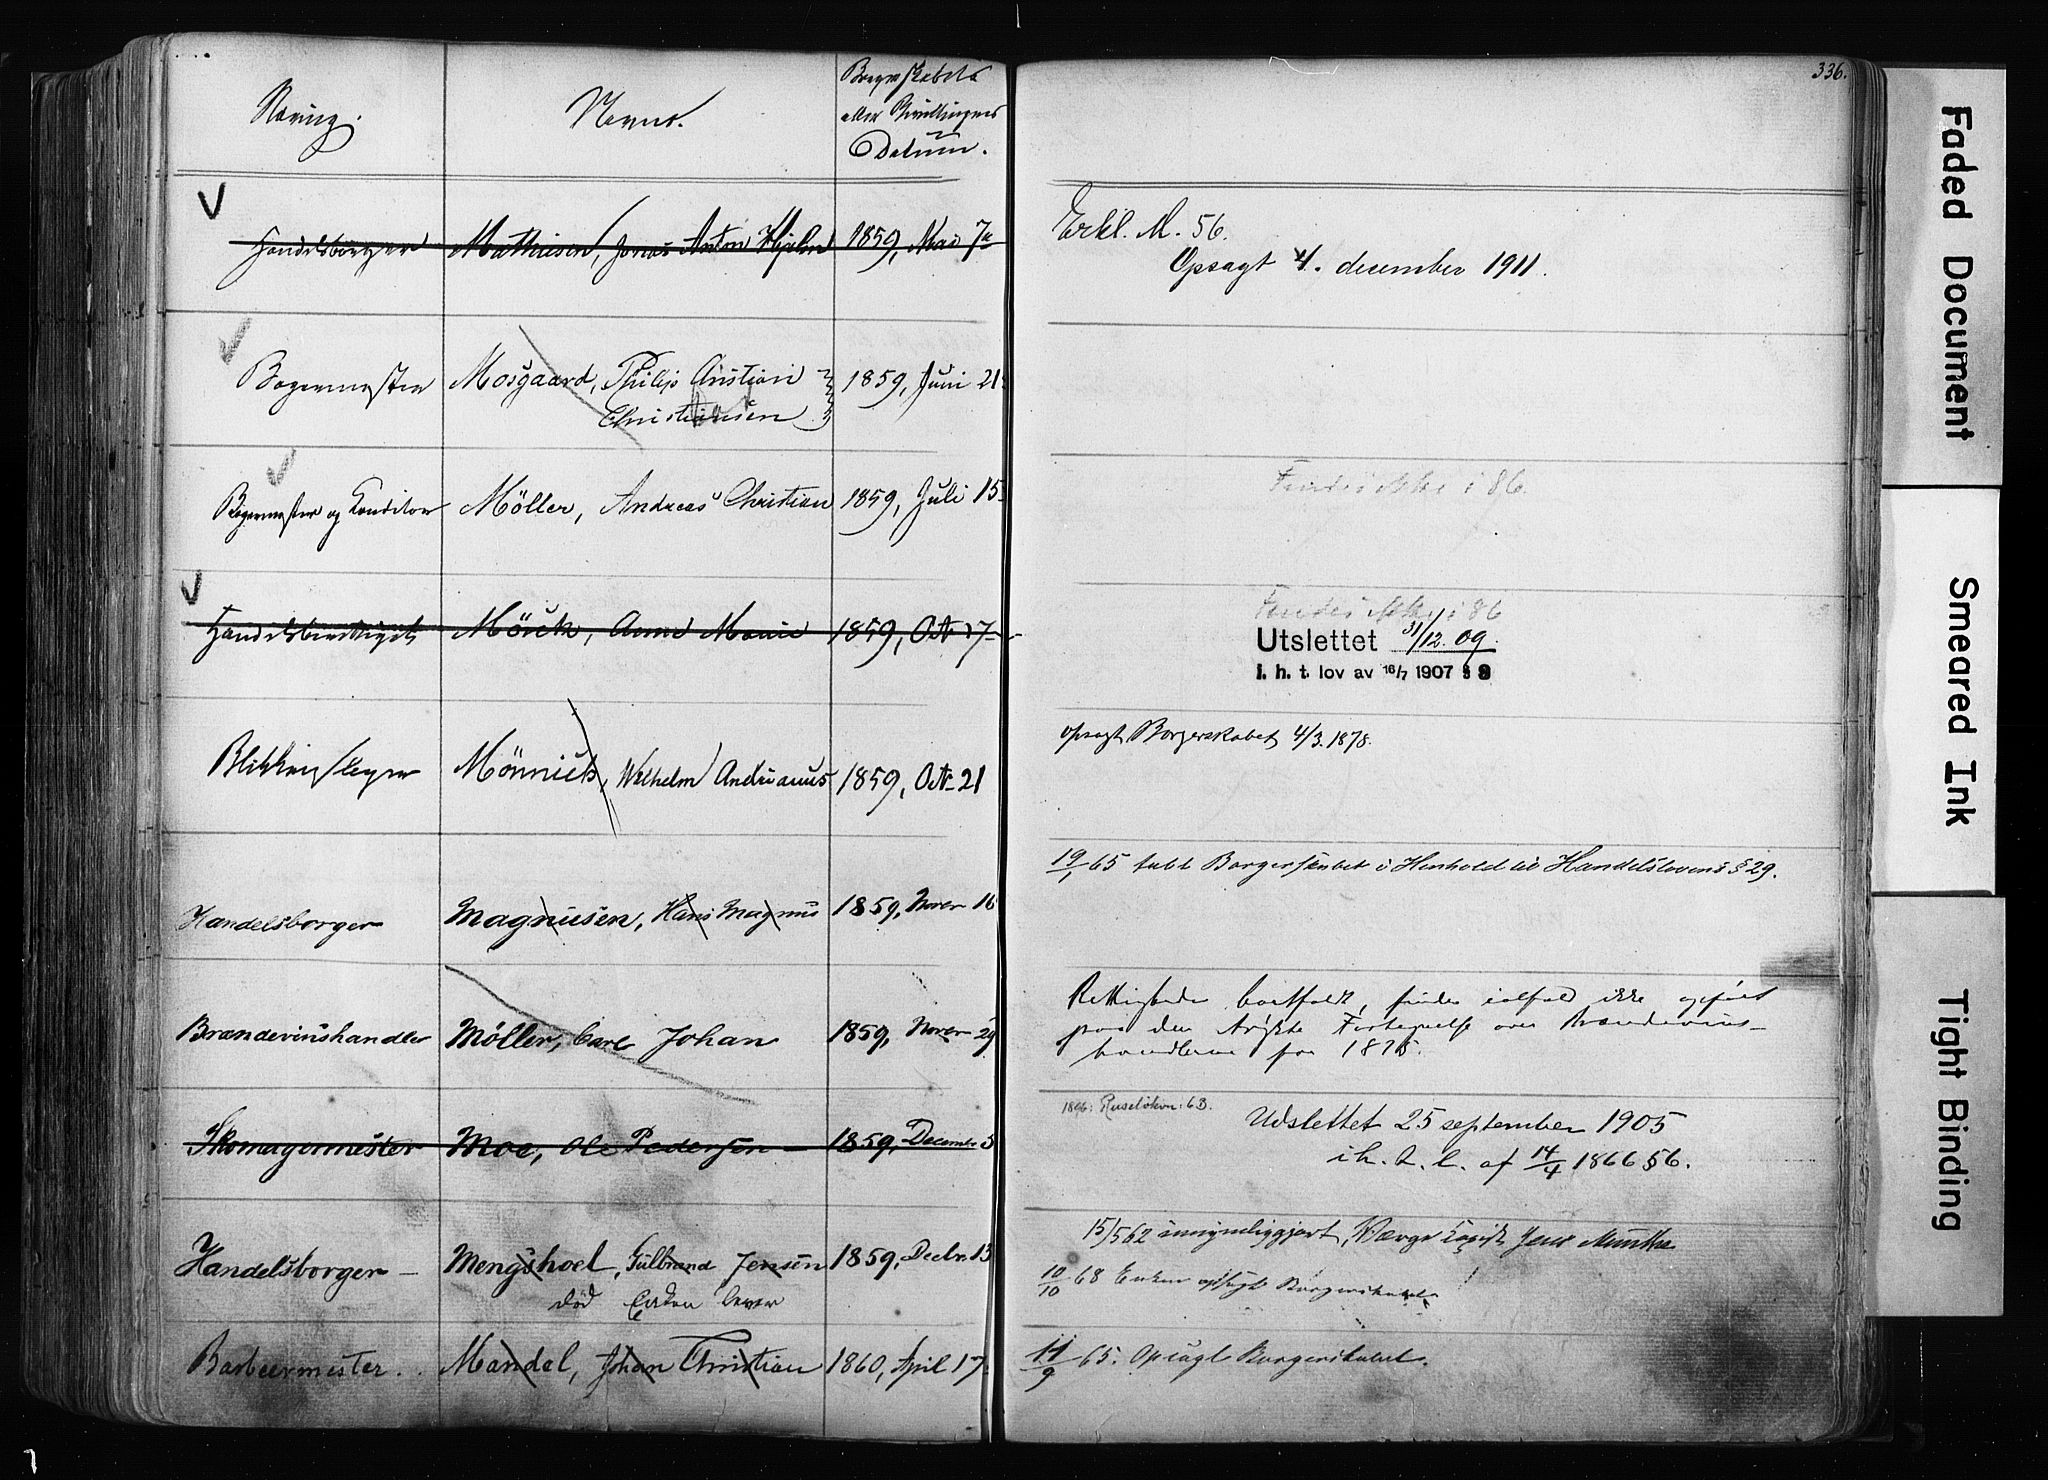 336.
Næring. Navne. Borgerskabets
eller Bevillingens
Datum.
Handelsborger Mathiesen, Jonas Anton Hjelm 1859, Mai 7de
Erkl. M. 56.
Opsagt 4. december 1911.
Bagermester Mosgaard, Philip Christian 1859, Juni 21
Christiansen
Død
Bagermester og Konditor Möller, Andreas Christian 1859, Juli 15
Findes ikke i 86.
Handelsberettiget Mörch, Anne Marie 1859, Oct. 17
Findes ikke i 86
Utslettet 31/12. 09.
i. h. t. lov av 16/7 1907 § 3
Blikkenslager Mönnich, Wilhelm Andreanus 1859, Oct. 21
opsagt Borgerskabet 4/3. 1878.
Handelsborger Magnusen, Hans Magnus 1859, Novbr 16
19/1 65 tabt Borgerskabet i Henhold til Handelslovens § 29.
Brændevinshandler Møller, Carl Johan 1859, Novbr 29
Rettigheden bortfaldt, findes ialfald ikke opført
paa den trykte Fortegnelse over Brændevins-
handlerne for 1875.
Skomagermester Moe, Ole Pedersen 1859, Decembr 5
1896: Ruseløkvn: 6B.
Udslettet 25 september 1905
i h. t. l. af 14/4 1866 § 6.
Handelsborger Mengshoel, Gulbrand Jensen 1859, Decbr. 13
død Enken lever
15/5 62 umyndiggjort, Værge Kopist Jens Munthe
10/10 68 Enken opsagt Borgerskabet
Barbeermester Mandal, Johan Christian 1860, April 17
11/9 65. Opsagt Borgerskabet.
Faded Document
Smeared Ink
Tight Binding